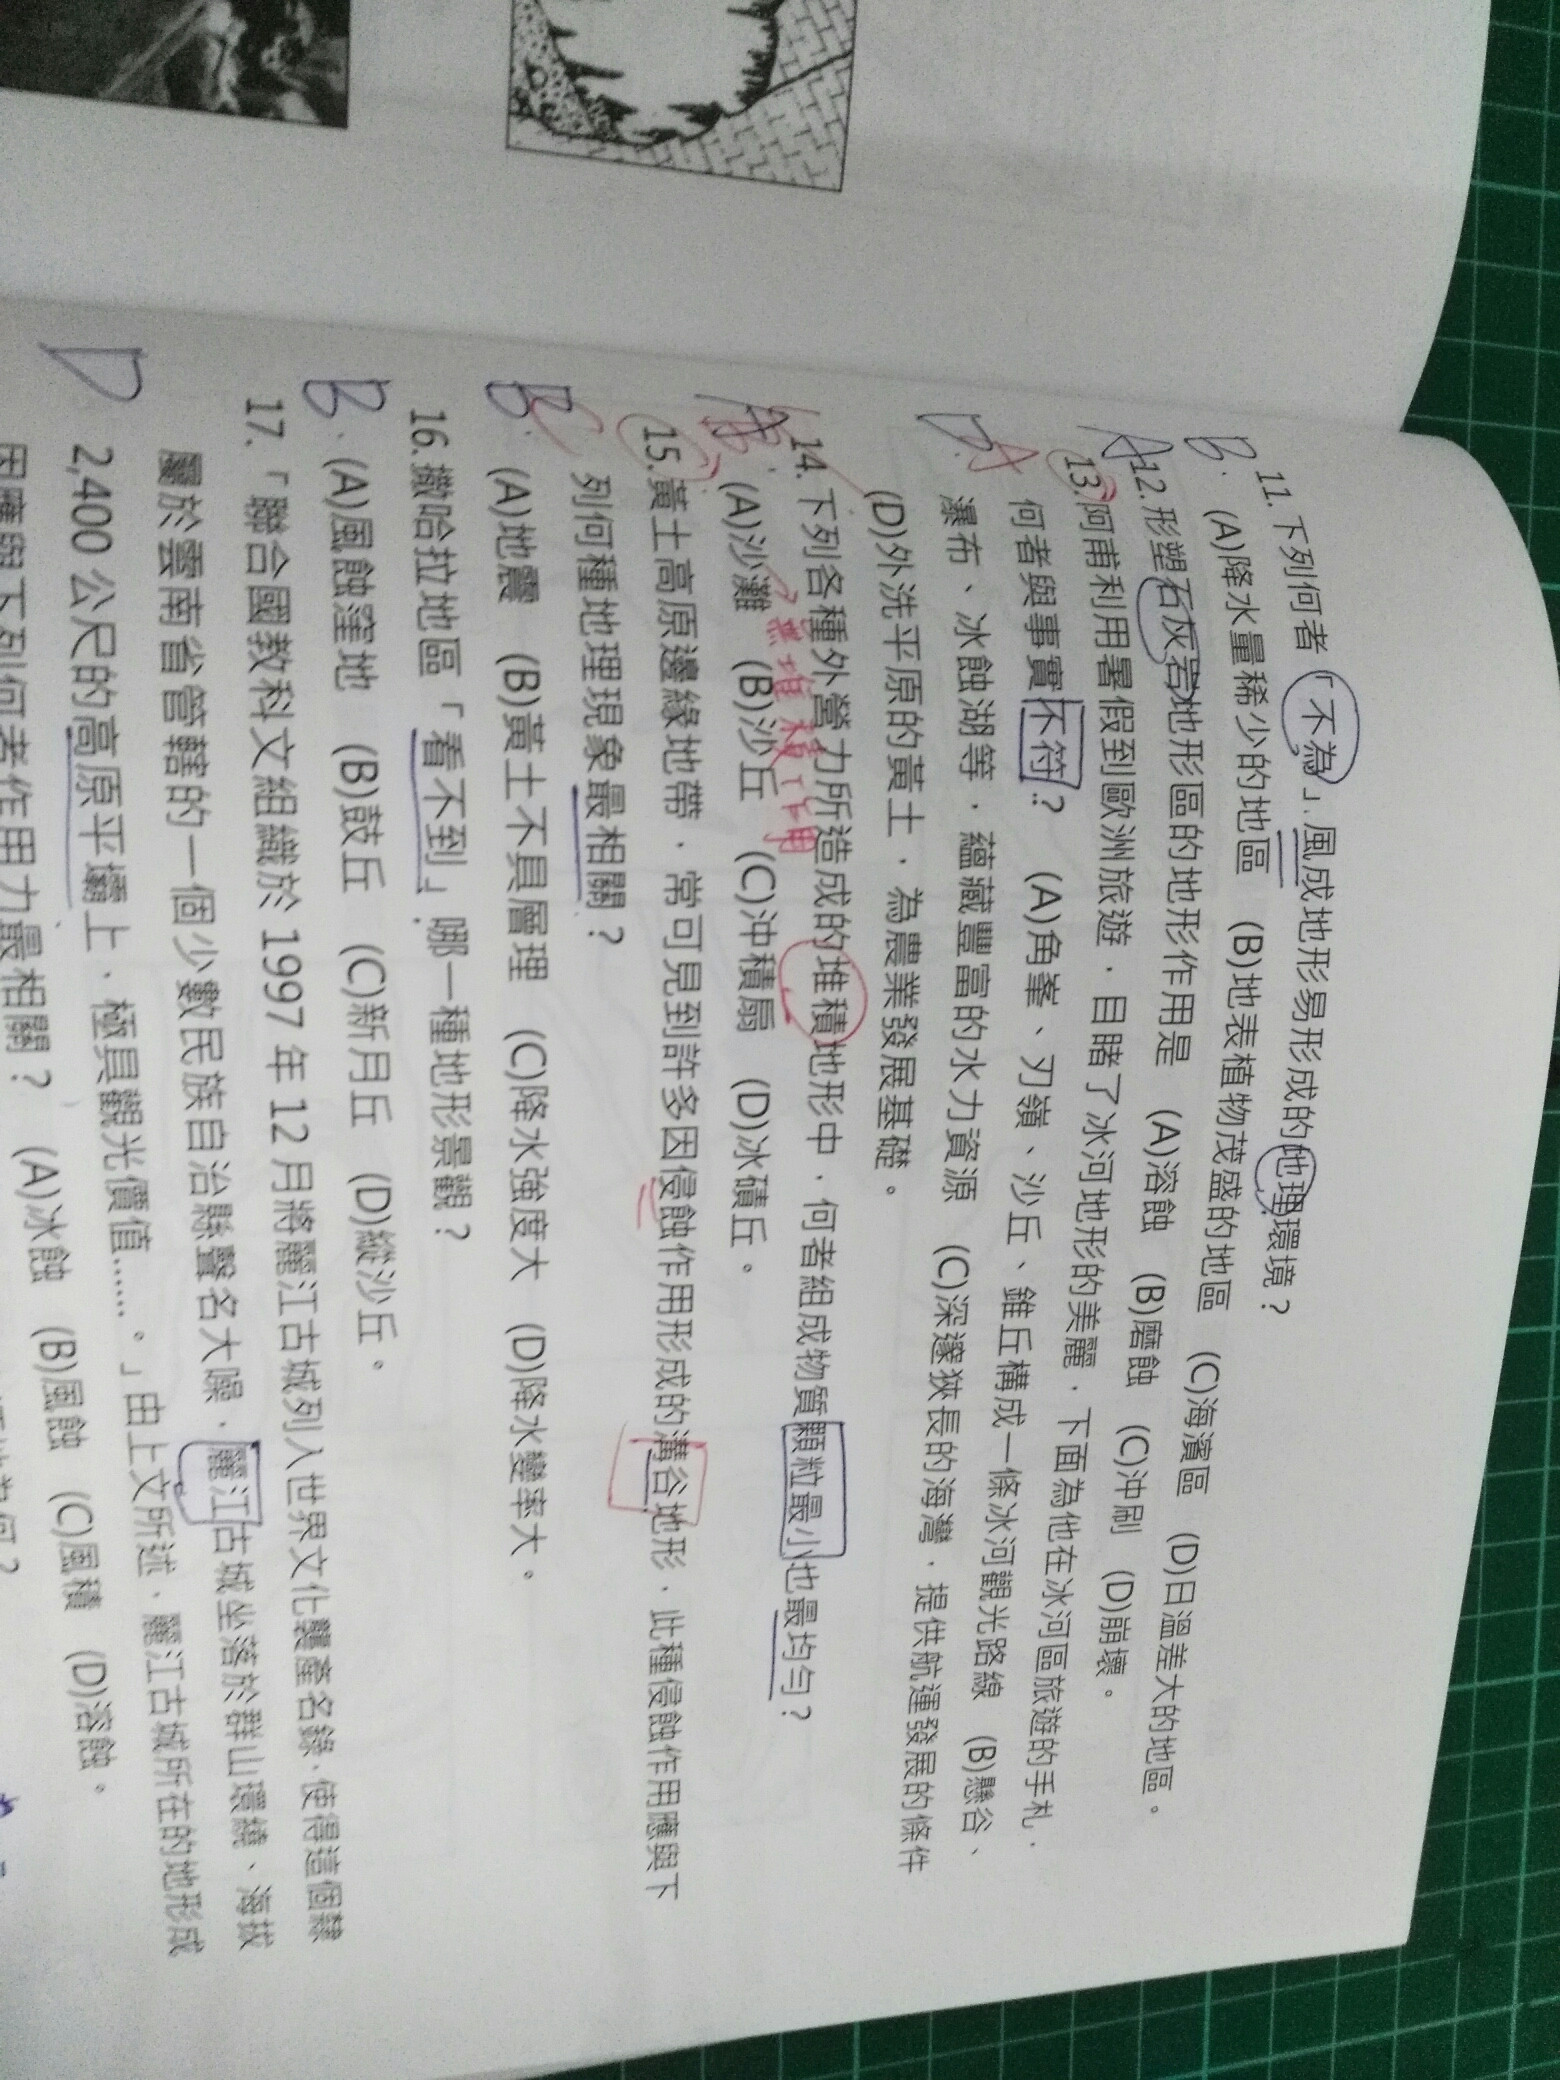 11.下列何者「不為」風成地形易形成的地理環境？
B. (A)降水量稀少的地區 (B)地表植物茂盛的地區 (C)海濱區 (D)日溫差大的地區。
12.形塑石灰岩地形區的地形作用是 (A)溶蝕 (B)磨蝕 (C)沖刷 (D)崩壞。
A
13.阿甫利用暑假到歐洲旅遊，目睹了冰河地形的美麗，下面為他在冰河區旅遊的手札，
何者與事實不符？ (A)角峯、刃嶺、沙丘、錐丘構成一條冰河觀光路線 (B)懸谷、
D. A
瀑布、冰蝕湖等，蘊藏豐富的水力資源 (C)深邃狹長的海灣，提供航運發展的條件
(D)外洗平原的黃土，為農業發展基礎。
14.下列各種外營力所造成的堆積地形中，何者組成物質顆粒最小也最均勻？
(A)沙灘 (B)沙丘 (C)沖積扇 (D)冰磧丘。
15.黃土高原邊緣地帶，常可見到許多因侵蝕作用形成的溝谷地形，此種侵蝕作用應與下
列何種地理現象最相關？
B. C
(A)地震 (B)黃土不具層理 (C)降水強度大 (D)降水變率大。
16.撒哈拉地區「看不到」哪一種地形景觀？
B. (A)風蝕窪地 (B)鼓丘 (C)新月丘 (D)縱沙丘。
17.「聯合國教科文組織於 1997 年 12 月將麗江古城列入世界文化襲產名錄，使得這個隸
屬於雲南省管轄的一個少數民族自治縣聲名大噪，麗江古城坐落於群山環繞、海拔
D
2,400 公尺的高原平壩上，極具觀光價值……。」由上文所述，麗江古城所在的地形成
因應與下列何者作用力最相關？ (A)冰蝕 (B)風蝕 (C)風積 (D)溶蝕。